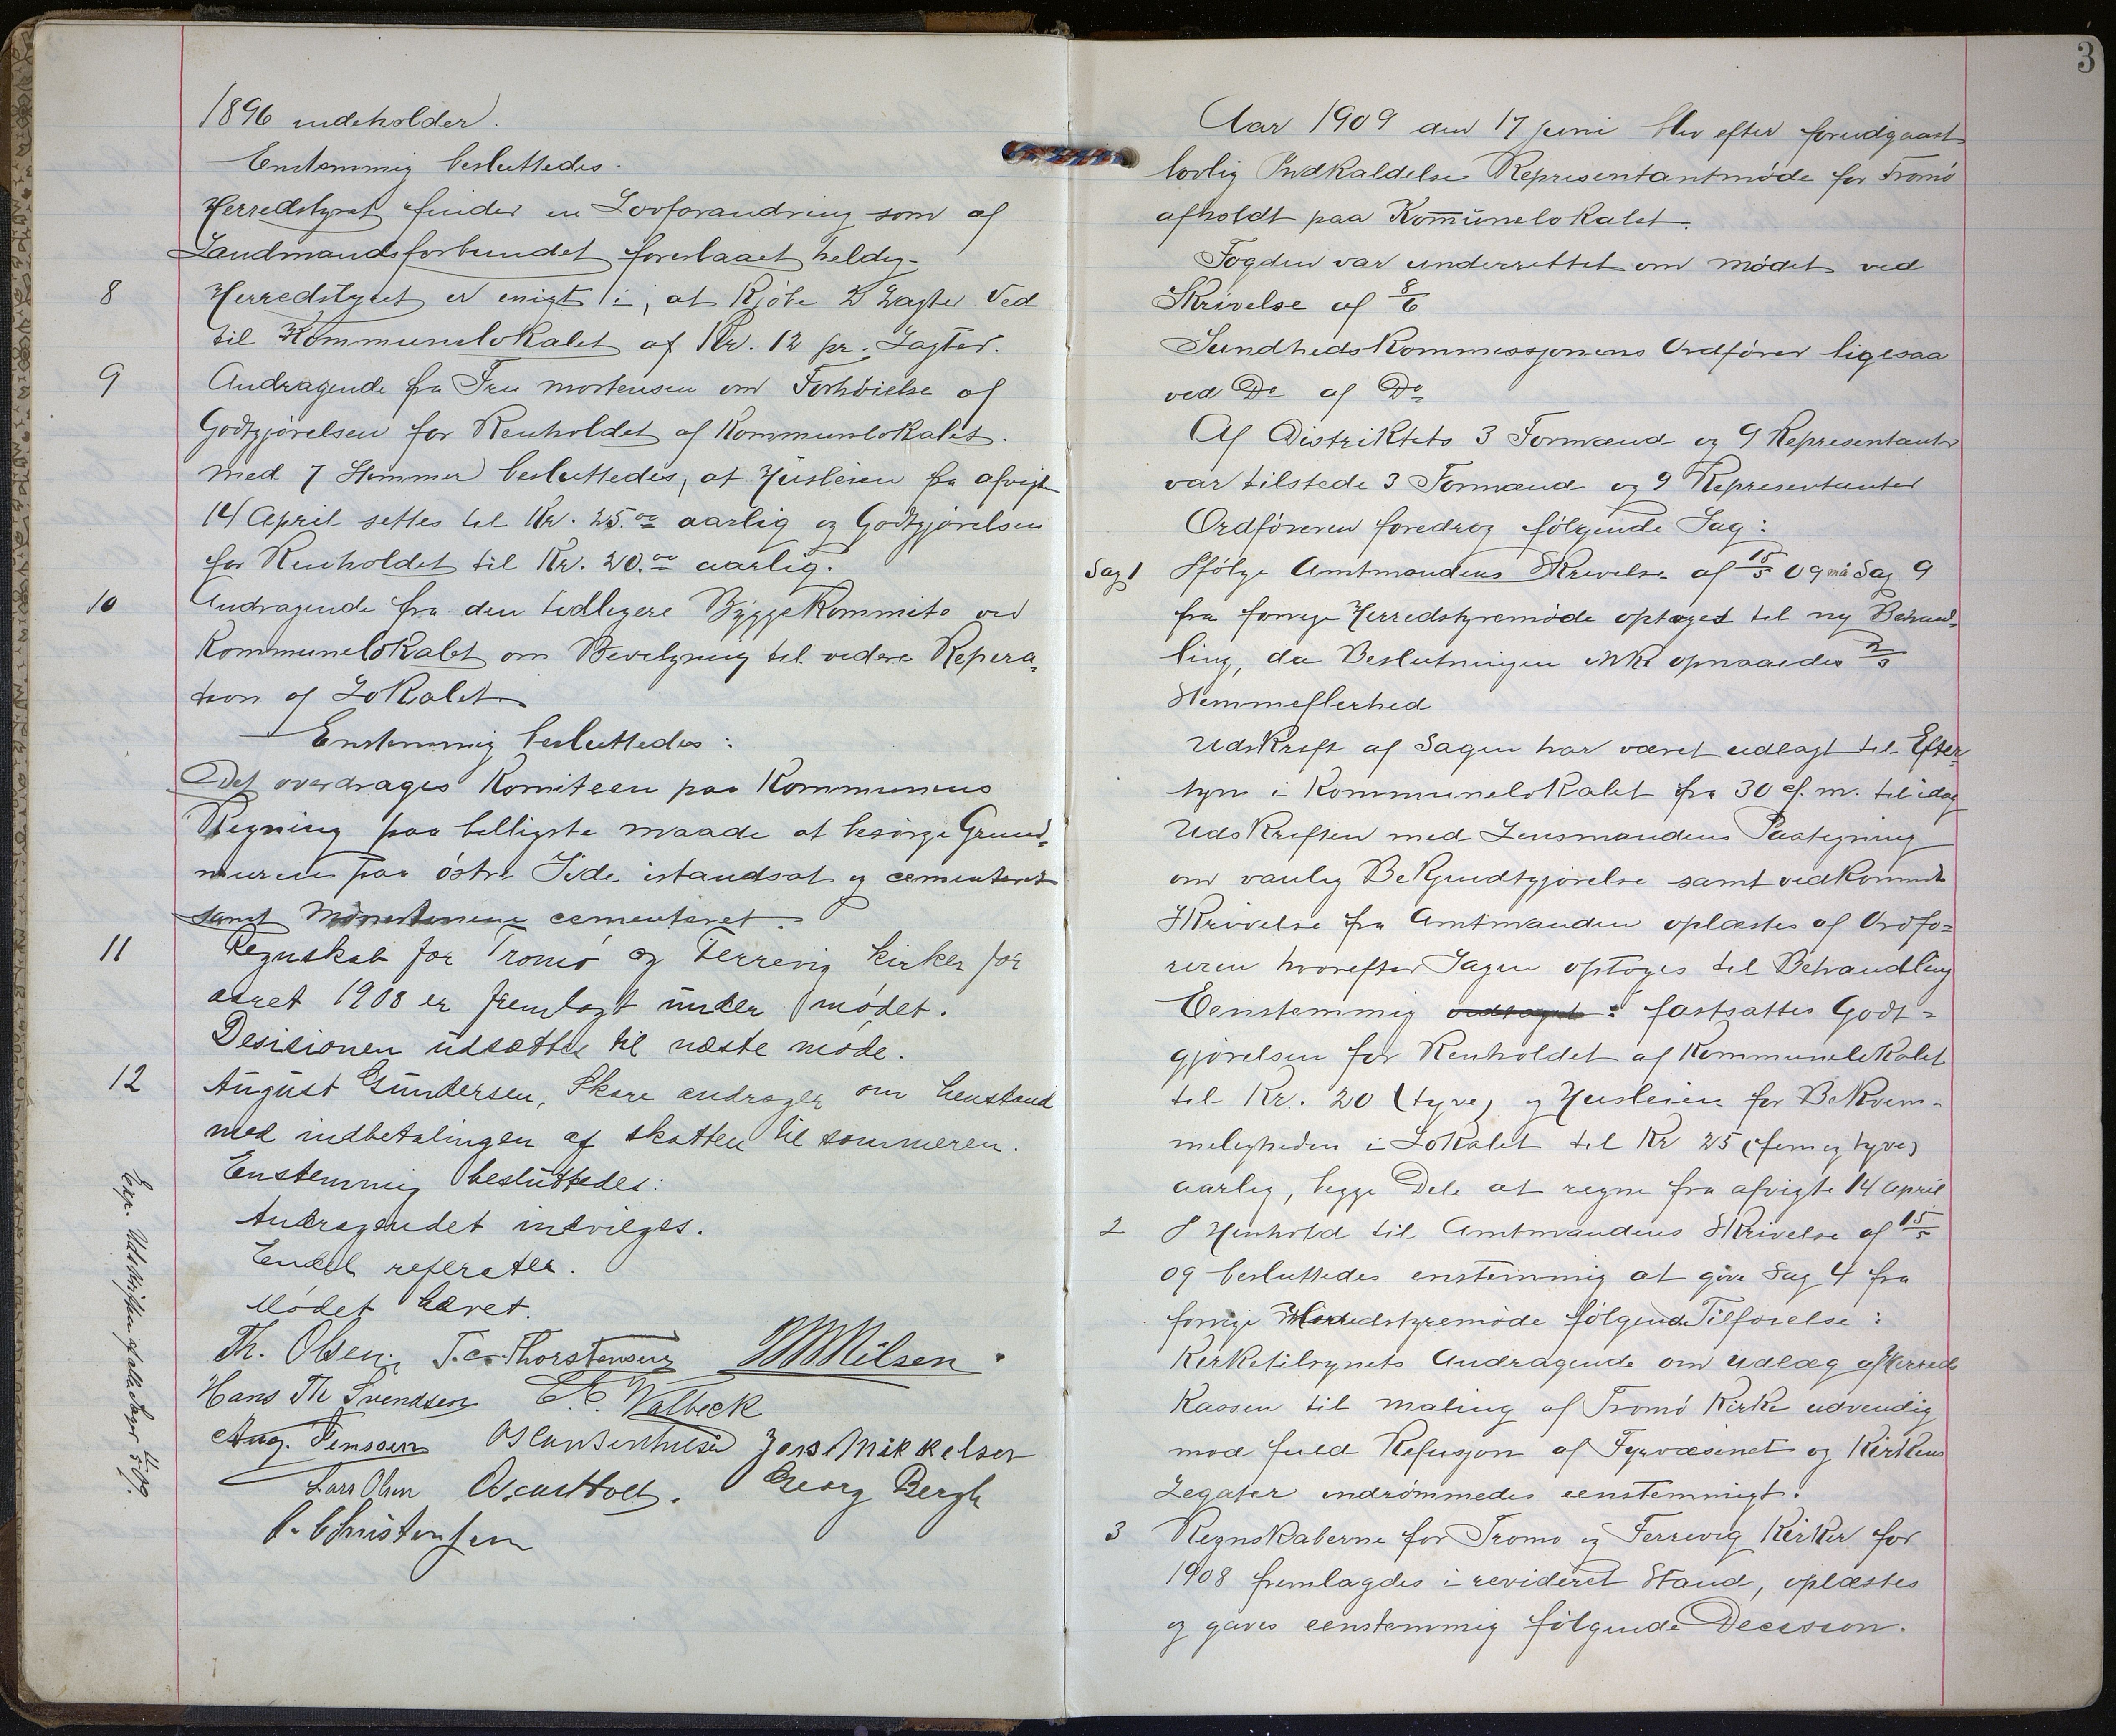 1896 indeholder.
Enstemmig besluttedes.
Herredstyret finder en Lovforandring som af
Landmandsforbundet foreslaaet heldig.
8 Herredstyret er enigt i, at kjøbe 2 Lagter Ved
til Kommunelokalet af Kr. 12 pr. Lagter.
9 Andragende fra Fru Mortensen om Forhøielse af
Godtgjørelsen for Renholdet af Kommunlokalet.
Med 7 Stemmer besluttedes, at Husleien fra afvigte
14 April settes til Kr. 25.00 aarlig og Godtgjørelsen
for Renholdet til Kr. 20.00 aarlig.
10 Andragende fra den tidligere Byggekommite ved
Kommunelokalet om Bevilgning til videre Repera-
tion af Lokalet
Enstemmig besluttedes:
Det overdrages Komiteen paa Kommunens
Regning paa billigste maade at besørge Grund-
muren paa østre Side istandsat og cementeret
samt cementeret.
11 Regnskab for Tromø og Færrevig kirker for
aaret 1908 er fremlagt under mødet.
Desisionen udsættes til næste møde.
12 August Gundersen, Skare andrager om henstand
med indbetalingen af skatten til sommeren.
Enstemmig besluttedes:
Andragendet indvilges.
Endel referater.
Mødet hævet.
Th. Olsen. T. C. Thorstensen Nilsen.
Hans Th Svendsen E. C. Walbeck
Aug. Jenssen Jens Mikkelsen
Lars Olsen Oscar Holt. Georg Bergh
C. Christensen
Exp. Udskriften af alle Sager 11/5 09.
3
Aar 1909 den 17 juni blev efter forudgaaet
lovlig Indkaldelse Representantmøde for Tromø
afholdt paa Komunelokalet.
Fogden var underrettet om mødet ved
Skrivelse af 8/6
Sundhedskommissjonens Ordfører ligesaa
ved Do af Do
Af Distriktets 3 Formænd og 9 Representanter
var tilstede 3 Formænd og 9 Representanter
Ordføreren foredrog følgende Sag:
Sag 1 Ifølge Amtmandens Skrivelse af 15/5 09 må Sag 9
fra forrige Herredstyremøde optages til ny Behand-
ling, da Beslutningen ikke opnaaedes 2/3
Stemmeflerhed
Udskrift af Sagen har været udlagt til Efter-
syn i Kommunelokalet fra 30 f. m. til idag
Udskriften med Lensmandens Paategning
om vanlig Bekjendtgjørelse samt vedkommende
Skrivelse fra Amtmanden oplæstes af Ordfø-
reren hvorefter Sagen optoges til Behandling
Eenstemmig vedtoges: fastsattes Godt-
gjørelsen for Renholdet af Kommunelokalet
til Kr. 20 (tyve) og Husleien for Bekvem-
meligheden i Lokalet til Kr 25 (fem og tyve)
aarlig, begge Dele at regne fra afvigte 14 April
2 I Henhold til Amtmandens Skrivelse af 15/5
09 besluttedes enstemmig at give Sag 4 fra
forrige Herredstyremøde følgende Tilførelse:
Kirketilsynets Andragende om Udlæg af Herreds
Kassen til Maling af Tromø Kirke udvendig
mod fuld Refusjon af Fyrvæsenet og Kirkens
Legater indrømmedes eenstemmigt.
3 Regnskaberne for Tromø og Færrevig Kirker for
1908 fremlagdes i revideret Stand, oplæstes
og gaves eenstemmig følgende Decision.